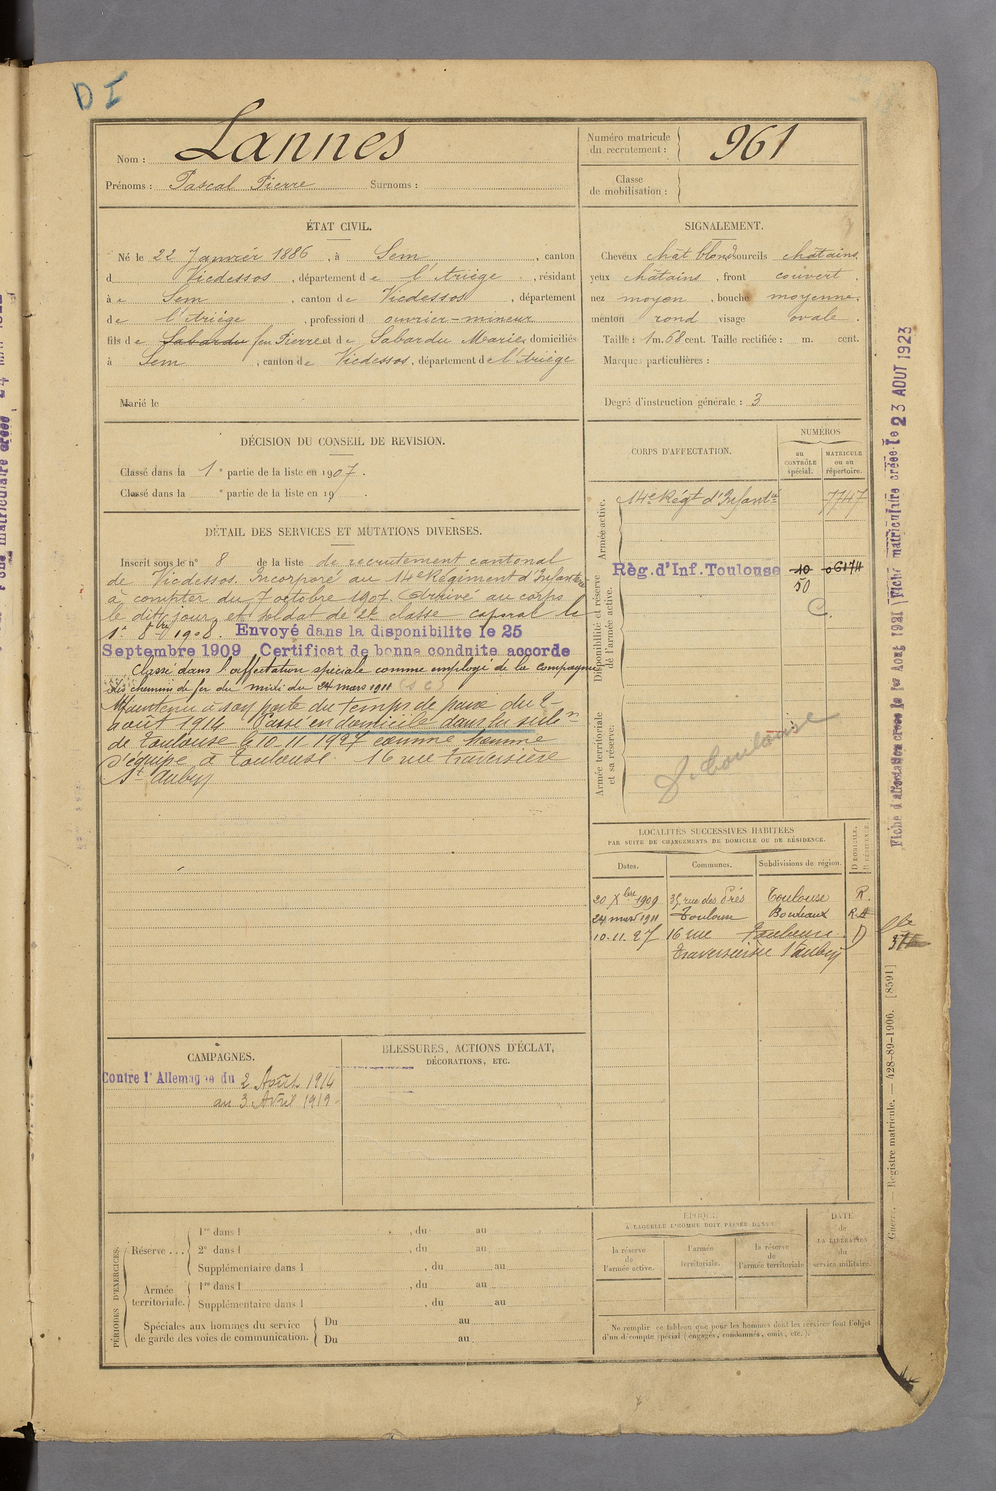 D I
Nom : Lannes
Prénoms : Pascal Pierre Surnoms :
Numéro matricule du recrutement : 961
Classe de mobilisation :
ÉTAT CIVIL.
Né le 22 Janvier 1886, à Sem, canton
d Vicdessos, département de l'Ariège, résidant
à Sem, canton de Vicdessos, département
de l'Ariège, profession d ouvrier-mineur
fils de Sabardu feu Pierre et de Sabardu Marie, domiciliés
à Sem, canton de Vicdessos, département de l'Ariège
Marié le
SIGNALEMENT.
Cheveux chât blond sourcils châtains
yeux châtains, front couvert.
nez moyen, bouche moyenne.
menton rond visage ovale.
Taille : 1 m. 68 cent. Taille rectifiée : m. cent.
Marques particulières :
Degré d'instruction générale : 3
DÉCISION DU CONSEIL DE REVISION.
Classé dans la 1e partie de la liste en 1907.
Classé dans la e partie de la liste en 19 .
DÉTAIL DES SERVICES ET MUTATIONS DIVERSES.
Inscrit sous le n° 8 de la liste de recrutement cantonal
de Vicdessos. Incorporé au 14e Régiment d'Infanterie
à compter du 7 octobre 1907. Arrivé au corps
le dit jour et soldat de 2e classe caporal le
1er 8bre 1908. Envoyé dans la disponibilite le 25
Septembre 1909 Certificat de bonne conduite accorde
Classé dans l'affectation spéciale comme employé de la compagnie
des chemins de fer du midi du 24 mars 1911 (s c)
Maintenu à son poste du temps de paix du 2
août 1914 Passé en domicile dans la subon
de Toulouse le 10-11-1927 comme homme
d'équipe à Toulouse 16 rue Traversière
St Aubin
CORPS D'AFFECTATION.
NUMÉROS
au CONTRÔLE spécial.
MATRICULE ou au répertoire.
Armée active.
14e Régt d'Infantie 7747
Disponibilité et réserve de l'armée active.
Règ. d'Inf. Toulouse 10 06174
50
C.
Armée territoriale et sa réserve.
Toulouse
LOCALITÉS SUCCESSIVES HABITÉES
PAR SUITE DE CHANGEMENTS DE DOMICILE OU DE RÉSIDENCE.
Dates. Communes. Subdivisions de région. DOMICILE, RÉSIDENCE
20 Xbre 1909 35 rue des Prés Toulouse R.
24 mars 1911 Toulouse Bordeaux R.
10.11.27 16 rue Toulouse D
Traversière St Aubin
CAMPAGNES.
Contre l'Allemagne du 2 Août 1914
au 3 Avril 1919
BLESSURES, ACTIONS D'ÉCLAT,
DÉCORATIONS, ETC.
PÉRIODES D'EXERCICES.
Réserve . . . 1re dans l , du au
2e dans l , du au
Supplémentaire dans l , du au
Armée territoriale. 1re dans l , du au
Supplémentaire dans l , du au
Spéciales aux hommes du service de garde des voies de communication. Du au
Du au
ÉPOQUE
A LAQUELLE L'HOMME DOIT PASSER DANS
la réserve de l'armée active.
l'armée territoriale.
la réserve de l'armée territoriale
DATE de LA LIBÉRATION du service militaire.
Ne remplir ce tableau que pour les hommes dont les services font l'objet
d'un décompte spécial (engagés, condamnés, omis, etc.).
Fiche d'affectation créée le 1er Août 1921 Fiche matriculaire créée le 23 AOUT 1923
Guerre. — Registre matricule. — 428-89-1906. [8591]